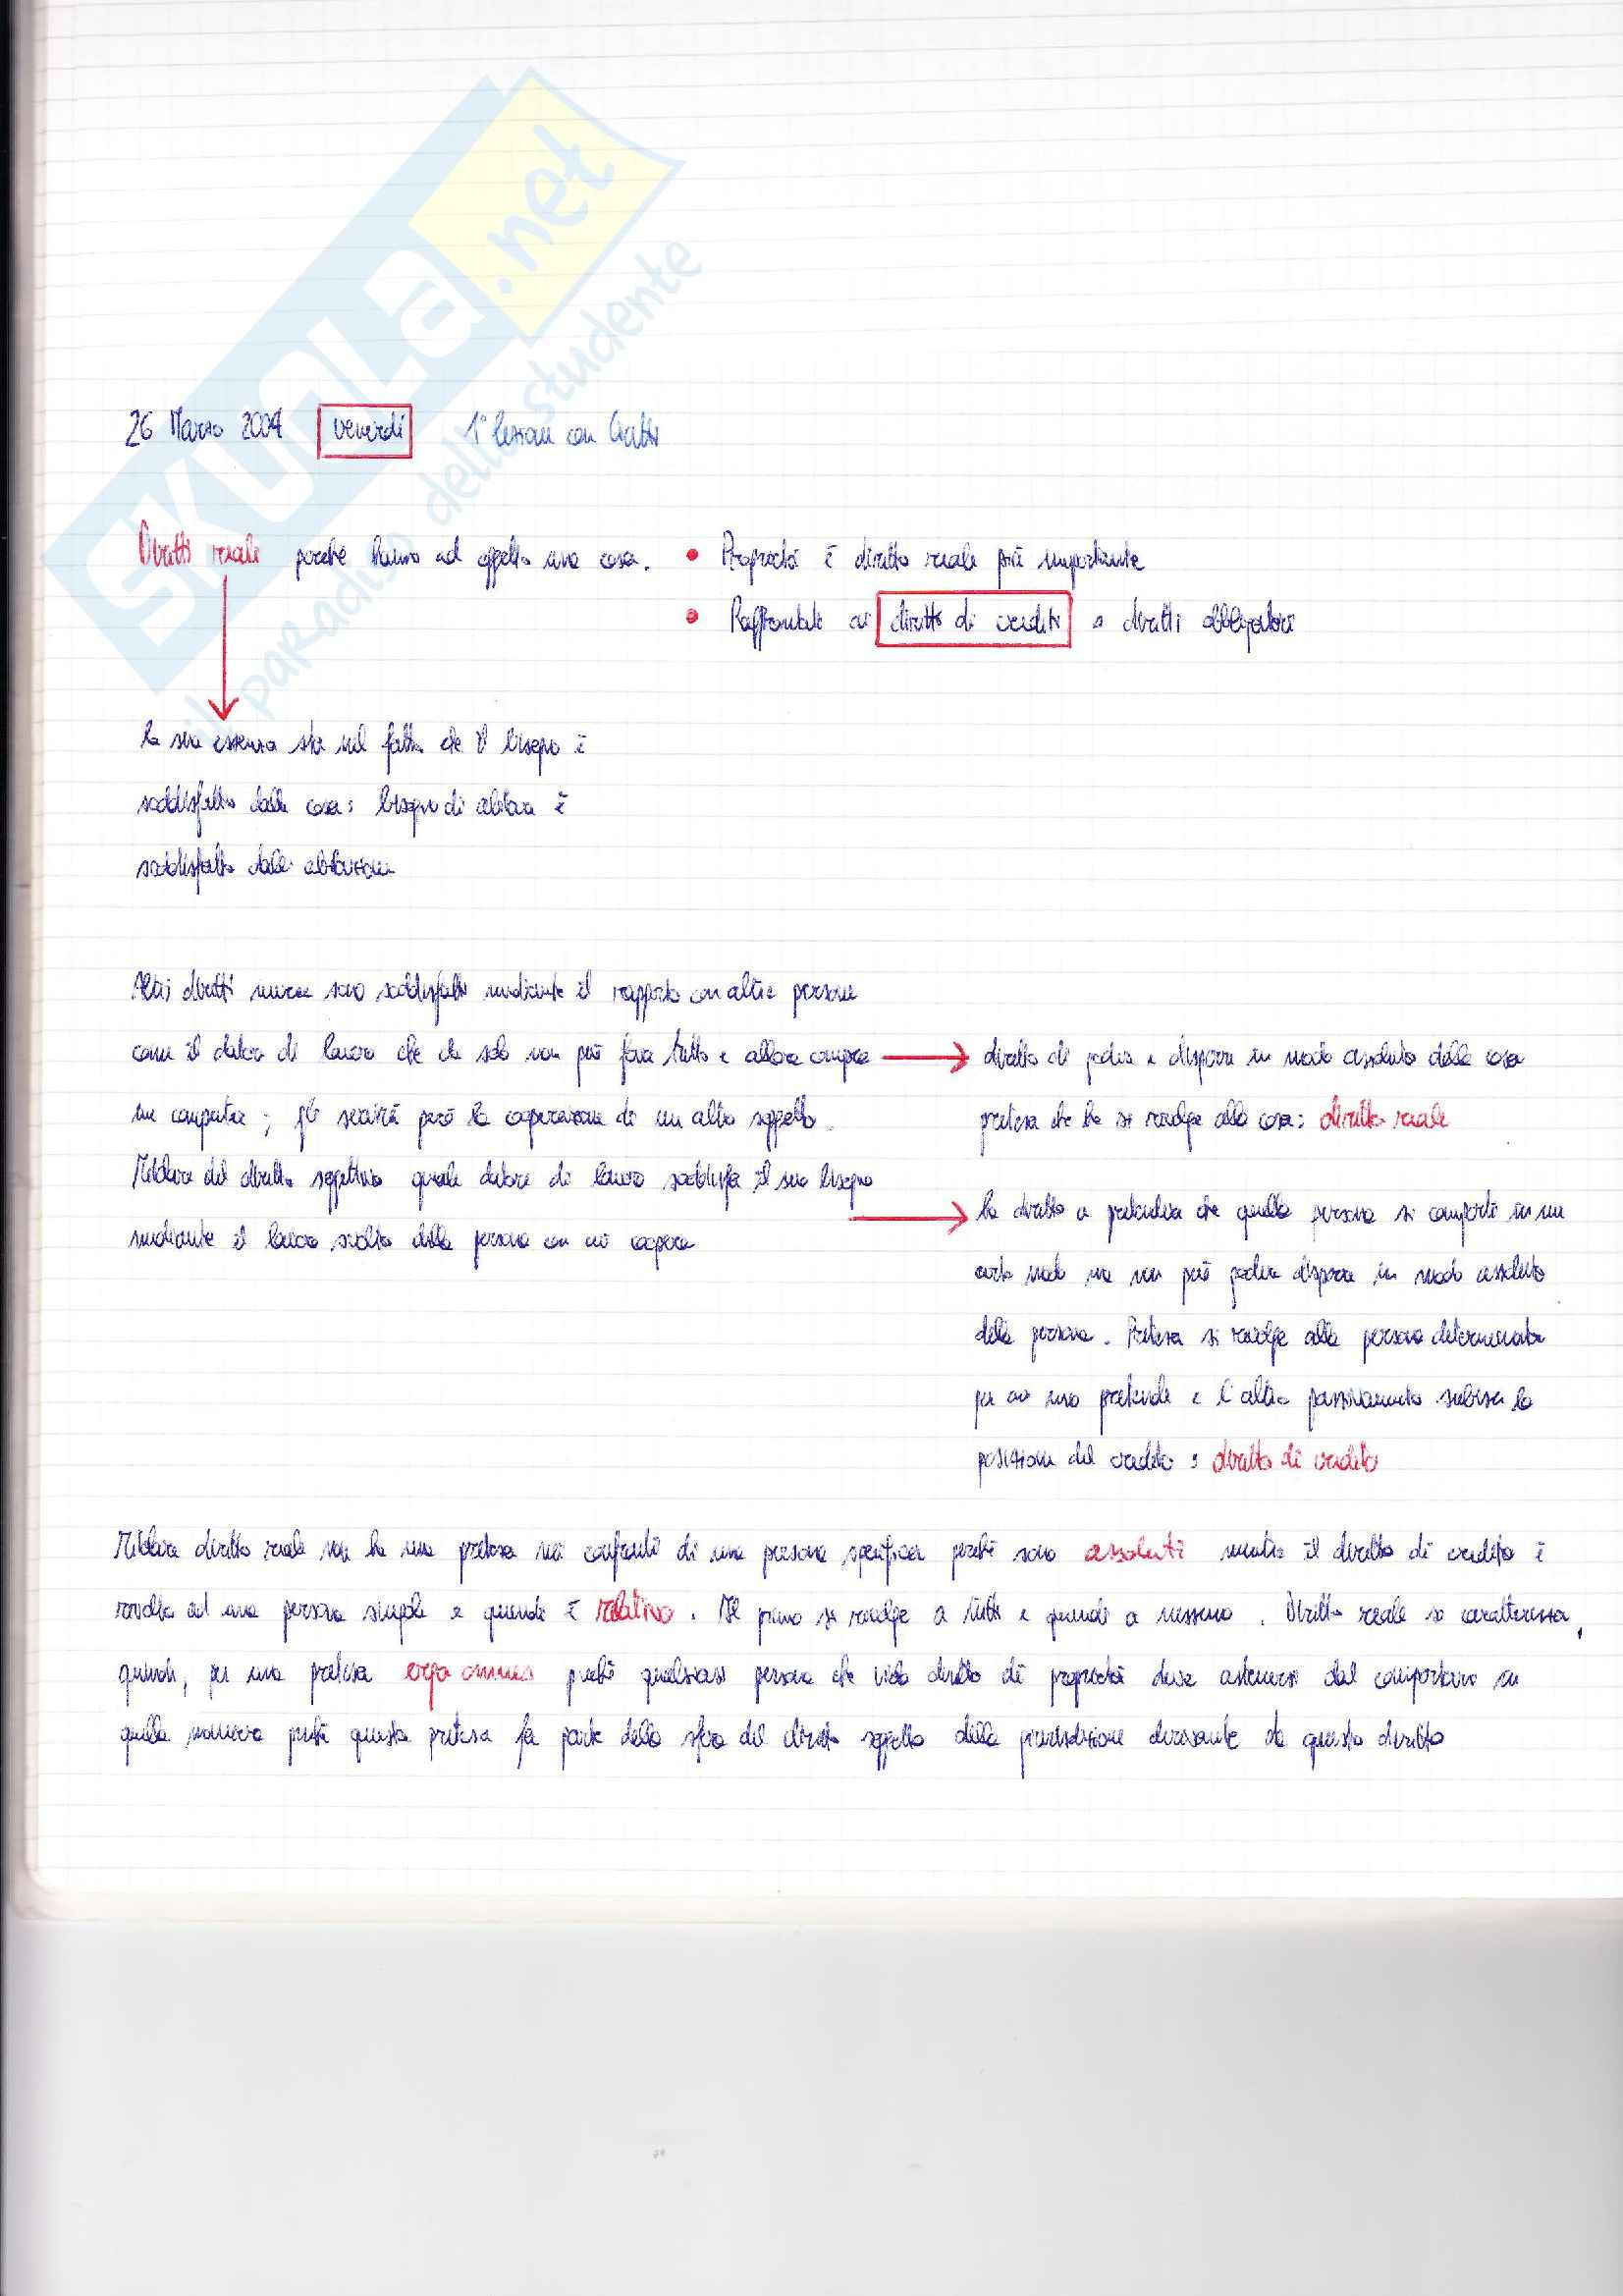 SKUOLA.net
il paradiso dello studente
26 Marzo 2004 venerdì 1° lezione con
Diritti reale perché hanno ad oggetto una cosa.
• Proprietà è diritto reale più importante
• Raffrontati ai diritto di crediti o diritti obbligatori
la sua essenza sta nel fatto che il bisogno è
soddisfatto dalla cosa: bisogno di abitare è
soddisfatto dalla abitazione
Altri diritti invece sono soddisfatti mediante il rapporto con altre persone
come il datore di lavoro che da solo non può fare tutto e allora compra
un computer; gli servirà però la cooperazione di un altro soggetto.
Titolare del diritto soggettivo quale datore di lavoro soddisfa il suo bisogno
mediante il lavoro svolto dalla persona con cui coopera
diritto di godere e disporre in modo assoluto della cosa
pretesa che ha si rivolge alla cosa: diritto reale
ha diritto a pretendere che quella persona si comporti in un
certo modo ma non può godere disporre in modo assoluto
della persona. Pretesa si rivolge alla persona determinata
per cui uno pretende e l'altro passivamente subisce la
posizione del credito: diritto di credito
Titolare diritto reale non ha una pretesa nei confronti di una persona specifica perché sono assoluti mentre il diritto di credito è
rivolto ad una persona singola e quindi è relativo. Il primo si rivolge a tutti e quindi a nessuno. Diritto reale si caratterizza,
quindi, per una pretesa erga omnes perché qualsiasi persona che vìola diritto di proprietà deve astenersi dal comportarsi in
quella maniera perché questa pretesa fa parte della sfera del diritto soggetto della giurisdizione derivante da questo diritto